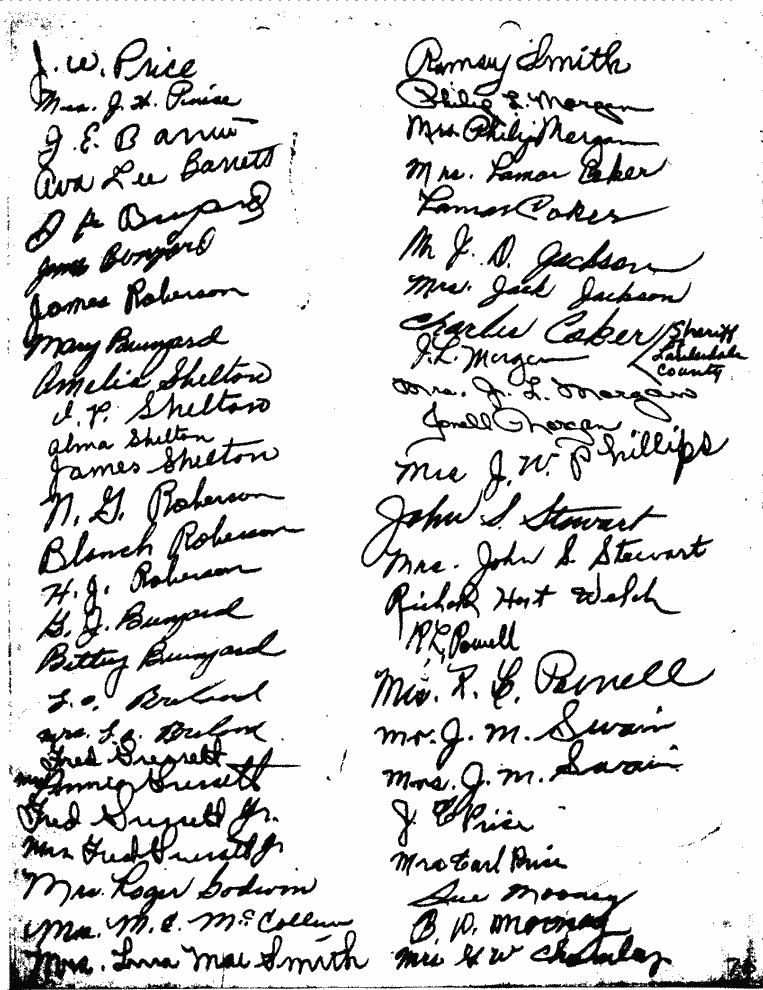 J. W. Price
Mrs. J. H. Price
J. E. Barrett
Ava Lee Barrett
Bunyard
James Bunyard
James Roberson
Mary Bunyard
Amelia Shelton
I. P. Shelton
Alma Shelton
James Shelton
N. G. Roberson
Blanch Roberson
H. J. Roberson
G. J. Bunyard
Bettey Bunyard
L. O. Breland
Mrs. L. O. Breland
Fred Gressett
Mrs Annie Gressett
Fred Gressett Jr.
Mrs Fred Gressett Jr
Mrs. Roger Godwin
Mrs. M. C. McCollum
Mrs. Lena Mae Smith
Ramsey Smith
Philip L. Morgan
Mrs. Philip Morgan
Mrs. Lamar Coker
Lamar Coker
Mr J. D. Jackson
Mrs. Jack Jackson
Charles Coker
Sheriff
Lauderdale
County
J. L. Morgan
Mrs. J. L. Morgan
Morgan
Mrs J. W. Phillips
John S. Stewart
Mrs. John S. Stewart
Richard Hart Welch
R L Powell
Mrs. R. L. Powell
Mr. J. M. Swain
Mrs. J. M. Swain
J. E Price
Mrs Earl Price
Sue Mooney
B. D. Mooney
Mrs G W Chamley